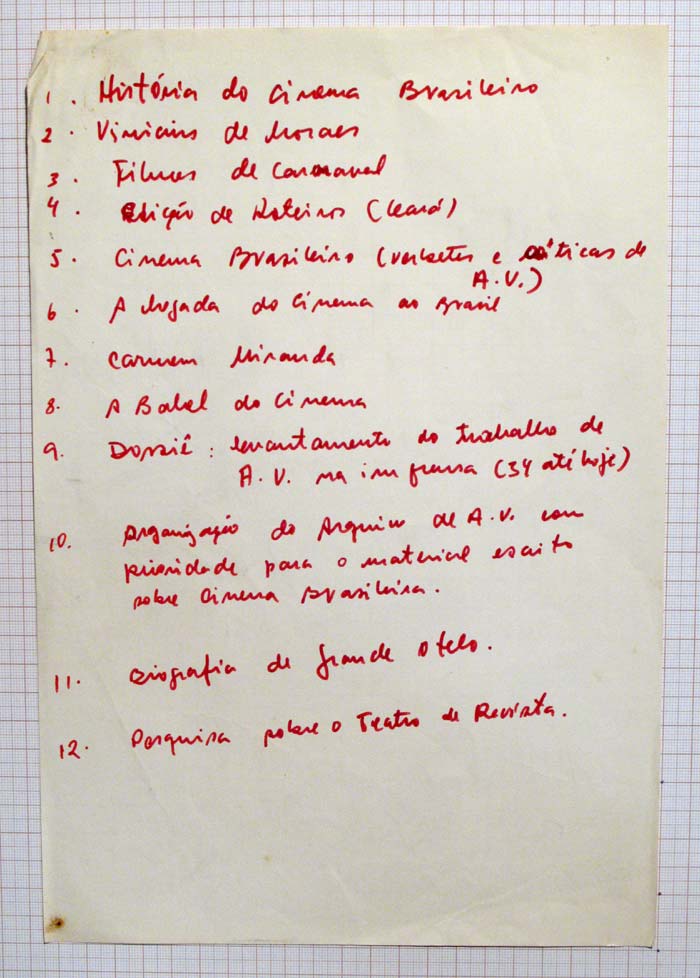 1. História do Cinema Brasileiro
2. Vinicius de Moraes
3. Filmes de Carnaval
4. Edição de Roteiros (Ceará)
5. Cinema Brasileiro (verbetes e críticas de
A.V.)
6. A chegada do Cinema ao Brasil
7. Carmem Miranda
8. A Babel do Cinema
9. Dossiê: levantamento do trabalho de
A.V. na imprensa (34 até hoje)
10. Organização do Arquivo de A.V. com
prioridade para o material escrito
sobre Cinema Brasileiro.
11. Biografia de Grande Otelo.
12. Pesquisa sobre o Teatro de Revista.